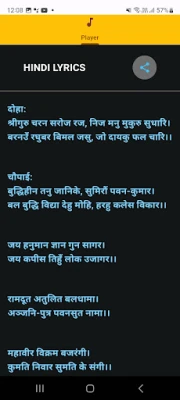 12:08
57%
Player
HINDI LYRICS
दोहा:
श्रीगुरु चरन सरोज रज, निज मनु मुकुरु सुधारि।
बरनउँ रघुबर बिमल जसु, जो दायकु फल चारि।।
चौपाई:
बुद्धिहीन तनु जानिके, सुमिरौं पवन-कुमार।
बल बुद्धि विद्या देहु मोहि, हरहु कलेस विकार।।
जय हनुमान ज्ञान गुन सागर।
जय कपीस तिहुँ लोक उजागर।।
रामदूत अतुलित बलधामा।
अञ्जनि-पुत्र पवनसुत नामा।।
महावीर विक्रम बजरंगी।
कुमति निवार सुमति के संगी।।